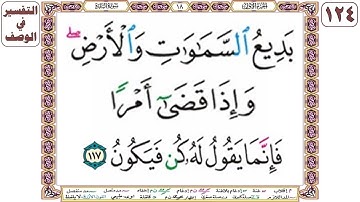 التفسير
في
الوصف
١٨
١٢٤
بَدِيعُ السَّمَٰوَٰتِ وَالْأَرْضِ ۖ
وَإِذَا قَضَىٰٓ أَمْرًا
فَإِنَّمَا يَقُولُ لَهُۥ كُن فَيَكُونُ ١١٧